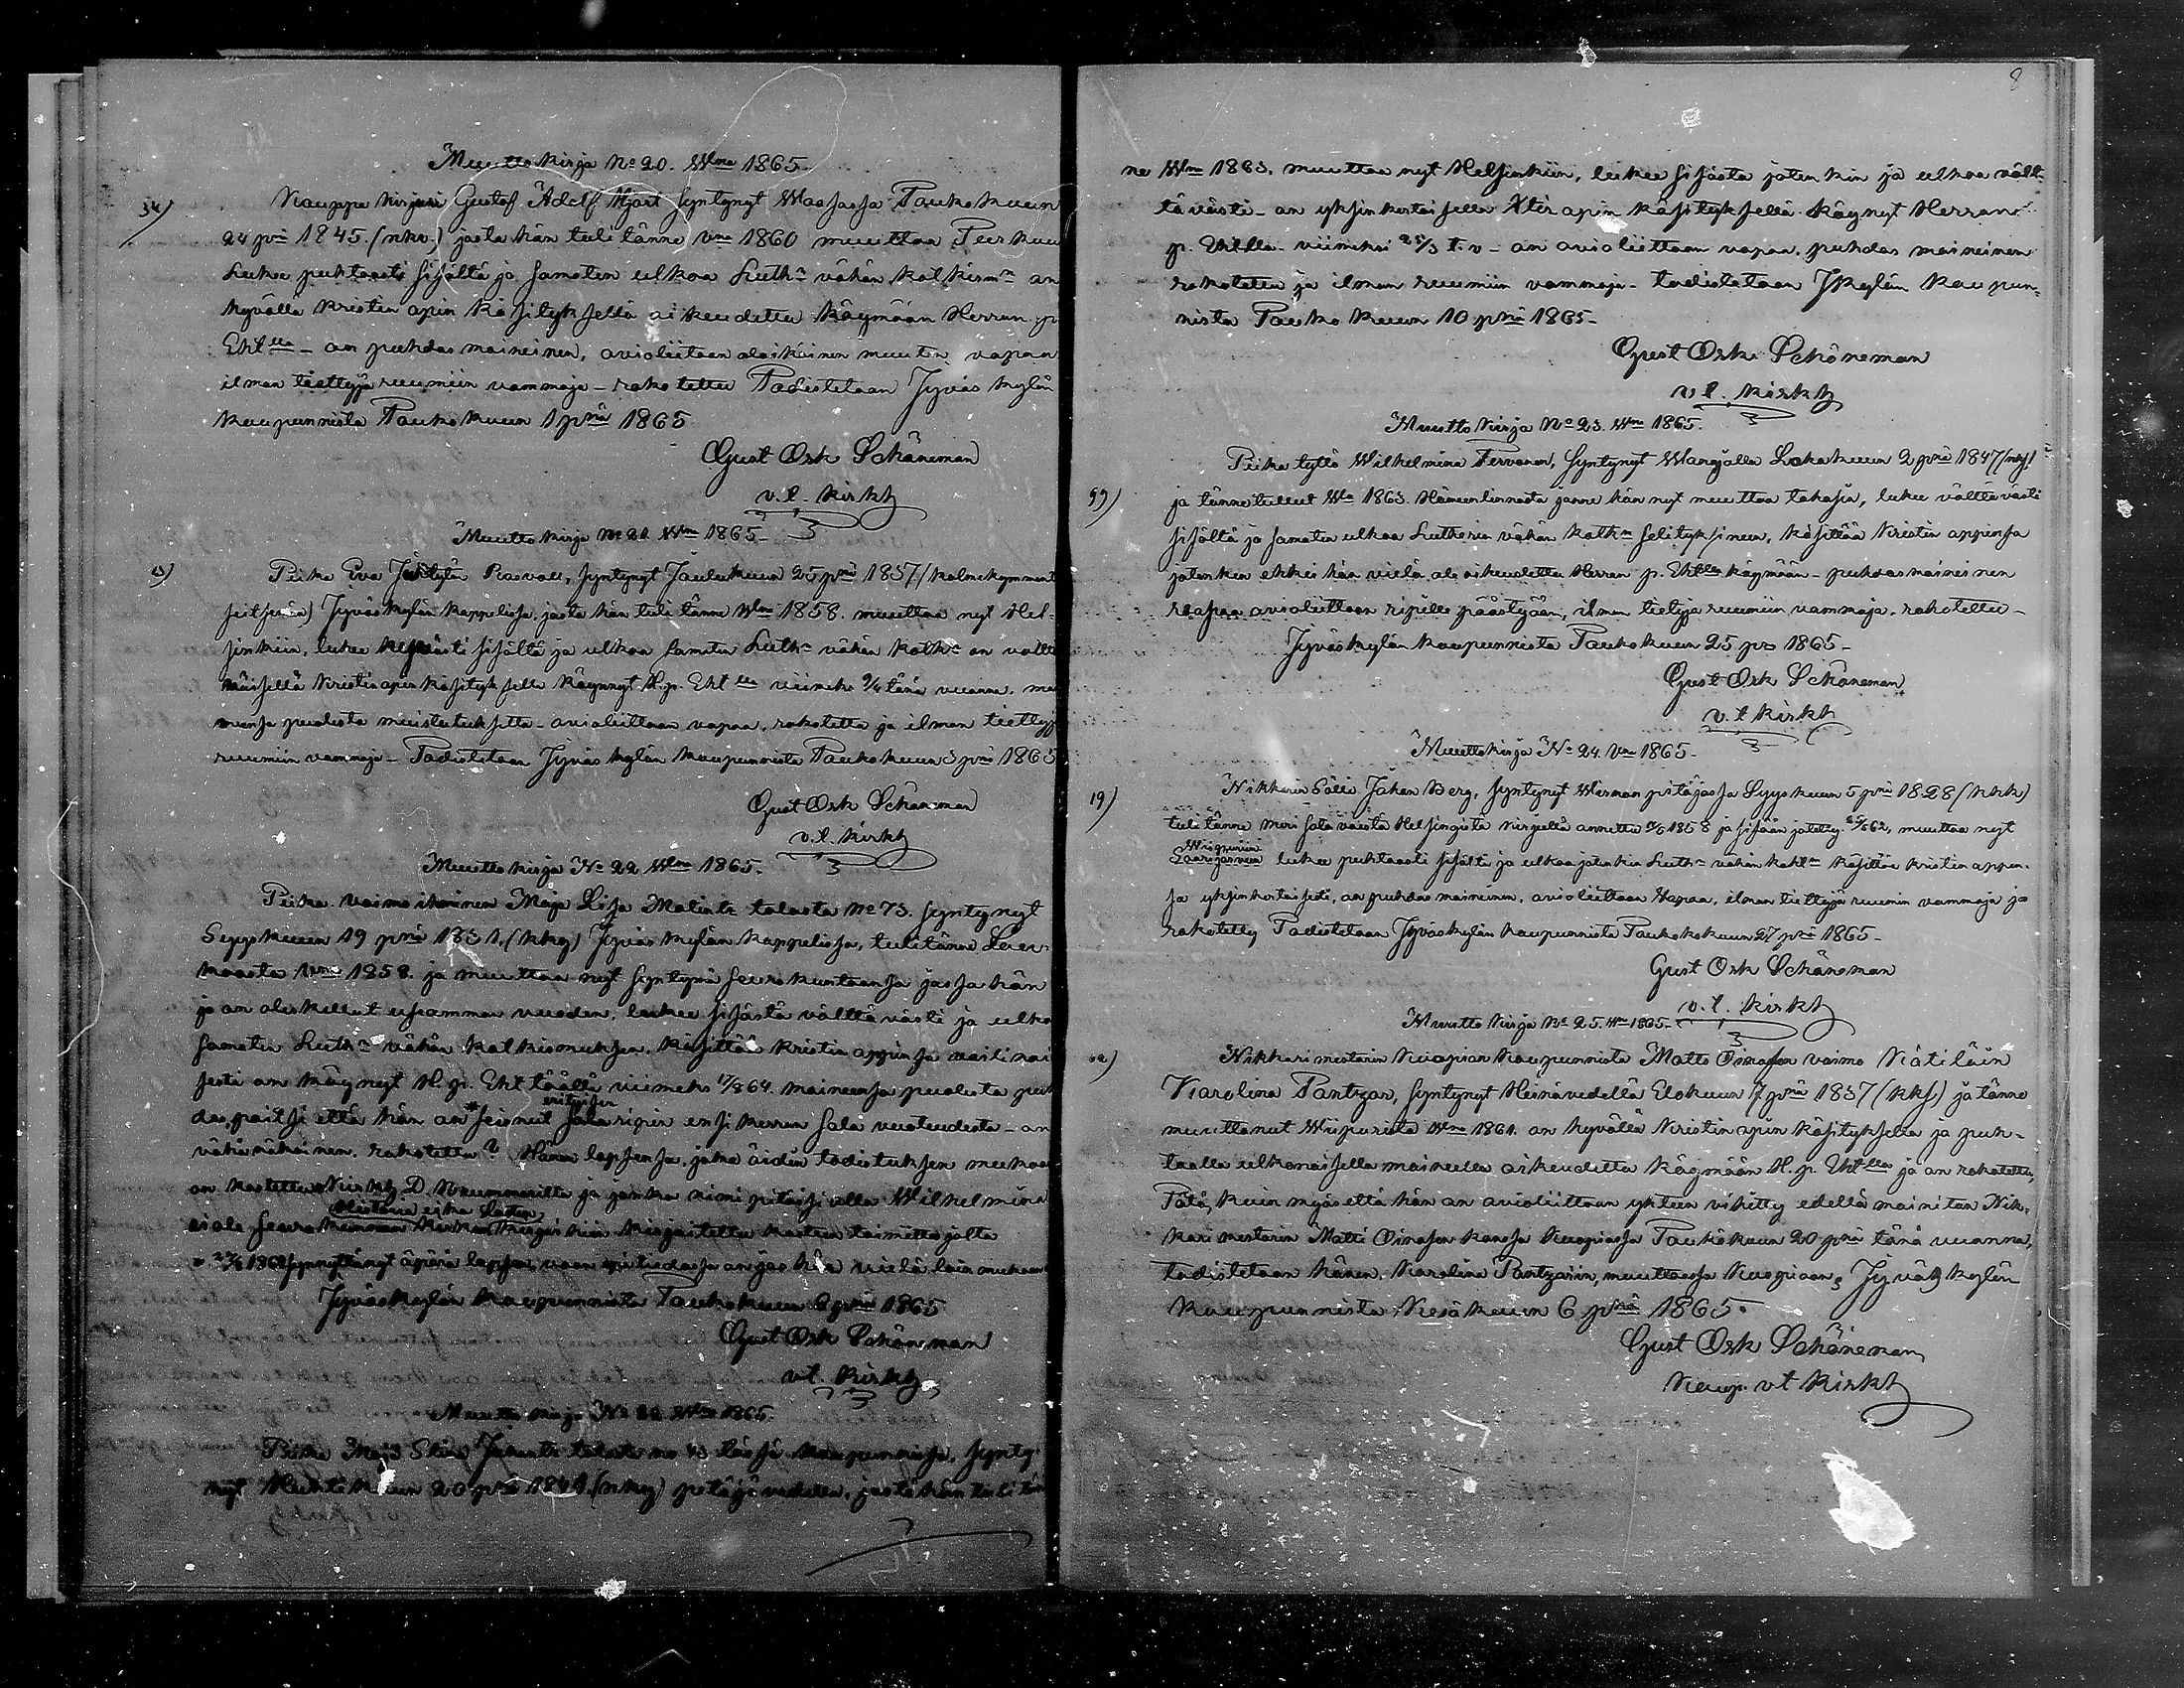 Muuttokirja No 20. Wna 1865.
34)
Kauppa kirjuri Gustof Adolf Hjort syntynyt Waasassa Toukokuun
24 pnä 1845. (nkv.) josta hän tuli tänne vna 1860 muuttaa Turkuu
Lukee puhtaasti sisältä ja samaten ulkoa Luth:n vähän katkism:n on
hyvällä kristin opin käsityksellä oikeudettu käymään Herran p
Eht:lla – on puhdas maineinen, avioliitoon alaikäinen muuten vapaa
ilman tiettyjä ruumiin vammoja – rokotettu Todistetaan Jyväskylän
kaupunnista Toukokuun 1 pnä 1865
Gust Osk Schöneman
v.t. kirkh
Muuttokirja No 21. Wna 1865.
Piika Eva Rasvall, syntynyt Joulukuun 25 pnä 1837 (kolmekymment
seitsemän) Jyväskylän kappelissa, josta hän tuli tänne Wna 1858. muuttaa nyt Hel-
sinkiin, lukee sisältä ja ulkoa samaten Luth:n vähän katk:n on
kristin opin käsityksellä käynyt H.p. Eht:lla viimeks 9/4 tänä vuonna,
puolesta muistutuksetta – avioliittoon vapaa, rokotettu ja ilman tiettyj
ruumiin vammoja – Todistetaan Jyväskylän kaupunnista Toukokuun 3 pnä 1865
Gust Osk Schöneman
v.t. kirkh
Muuttokirja No 22 Wna 1865.
Piika vaimo ihminen Maja Lisa Matintr. talosta No 73. syntynyt
Syyskuun 19 pnä 1831. (kky) Jyväskylän kappelissa, tuli tänne
Wna 1858. ja muuttaa nyt syntymä seurakuntaansa jossa hän
jo on oleskellut useamman vuoden, lukee sisästä välttävästi ja ulko
samaten Luth:n vähän katkismuksen, käsittää kristin oppinsa
on käynyt H.p. Eht täällä viimeks 64. maineensa puolesta puh
das, paitsi että hän on * erityisen salaripin ensikerran sala vuoteudesta – on
vähänäköinen, rokotettu? Hänen lapsensa, joka äidin todistuksen mukaan
on kastettu Kirkh. D. ja jonka nimi pitäisi olla Wilhelmina
ei ole seurakunnan kirjoihin kirjoitettu kasteen toimittajalta
* 1862 synnyttänyt äpärä lapsen,
Jyväskylän kaupunnista Toukokuun 6 pnä 1865
Gust Osk Schöneman
vt. kirkh
Muuttokirja No 22. Wna 1865.
Piika Maja Stina talosta no 43 tässä kaupunnissa, synty-
nyt Huhtikuun 20 pnä (nkny) pitäjävedellä, josta hän tuli tän
8
ne Wna 1863. muuttaa nyt Helsinkiin, lukee sisästä jotenkin ja ulkoa vält-
tävästi – on yksinkertaisella Xtir opin käsityksellä käynyt Herran
p. Eht:lla viimeksi 25/3 t.v – on avioliittoon vapaa, puhdas maineinen
rokotettu ja ilman ruumiin vammoja – todistetaan Jkylän kaupun-
nista Toukokuun 10 pnä 1865 –
Gust Osk Schöneman
v.t. kirkh
Muuttokirja No 23. Wna 1865.
59)
Piika tyttö Wilhelmina Tervonen, syntynyt Lokakuun 2 pnä 1847
ja tänne tullut Wa 1863. Hämeenlinnasta jonne hän nyt muuttaa takasin, lukee välttävästi
sisältä ja samaten ulkoa Lutherin vähän katk:n selityksineen, käsittää kristin oppinsa
jotenkin ehkei hän vielä ole oikeudettu Herran p. Eht:lla käymään – puhdas maineinen
vapaa avioliittoon ripille päästyään, ilman tiettyjä ruumiin vammoja, rokotettu –
Jyväskylän kaupunnista Toukokuun 25 pnä 1865 –
Gust Osk Schöneman
v.t kirkh
Muuttokirja No 24. Wna 1865.
19)
Nikkarin Sälli Johan Berg, syntynyt Wirman pitäjässä Syyskuun 5 pnä 1828 (kkk)
tuli tänne meri sotaväestä Helsingistä kirjalla annettu 1858 ja sisään jätetty 62, muuttaa nyt
Wiipuriin
Saarijärven lukee puhtaasti sisältä ja ulkoa jotenkin Luth:n vähän katk:n käsittää kristin oppin-
sa yksinkertaisesti, on puhdas maineinen, avioliittoon vapaa, ilman tiettyjä ruumin vammoja ja
rokotettu Todistetaan Jyväskylän kaupunnista Toukokokuun 27 pnä 1865 –
Gust Osk Schöneman
v.t. kirkh
Muuttokirja No 25. Wna 1865.
Nikkarimestarin Kuopion kaupunnista Matts Oinosen vaimo
Karolina Pantzar, syntynyt Heinävedellä Elokuun 7 pnä 1837 (kks) ja tänne
muuttanut Wiipurista Wna 1861. on hyvällä kristin opin käsityksella ja puh-
taalla ulkonaisella maineella oikeudettu käymään H.p. Eht:lla ja on rokotettu,
Tätä, kuin myös että hän on avioliittoon yhteen vihitty edellä mainitun Nik-
karimestarin Matti Oinosen kanssa Kuopiossa Toukokuun 20 pnä tänä vuonna,
todistetaan hänen, Karolina Pantzarin, muuttaessa Kuopioon; Jyväskylän
kaupunnista Kesäkuun 6 pnä 1865.
Gust Osk Schöneman
Kaup. vt kirkh